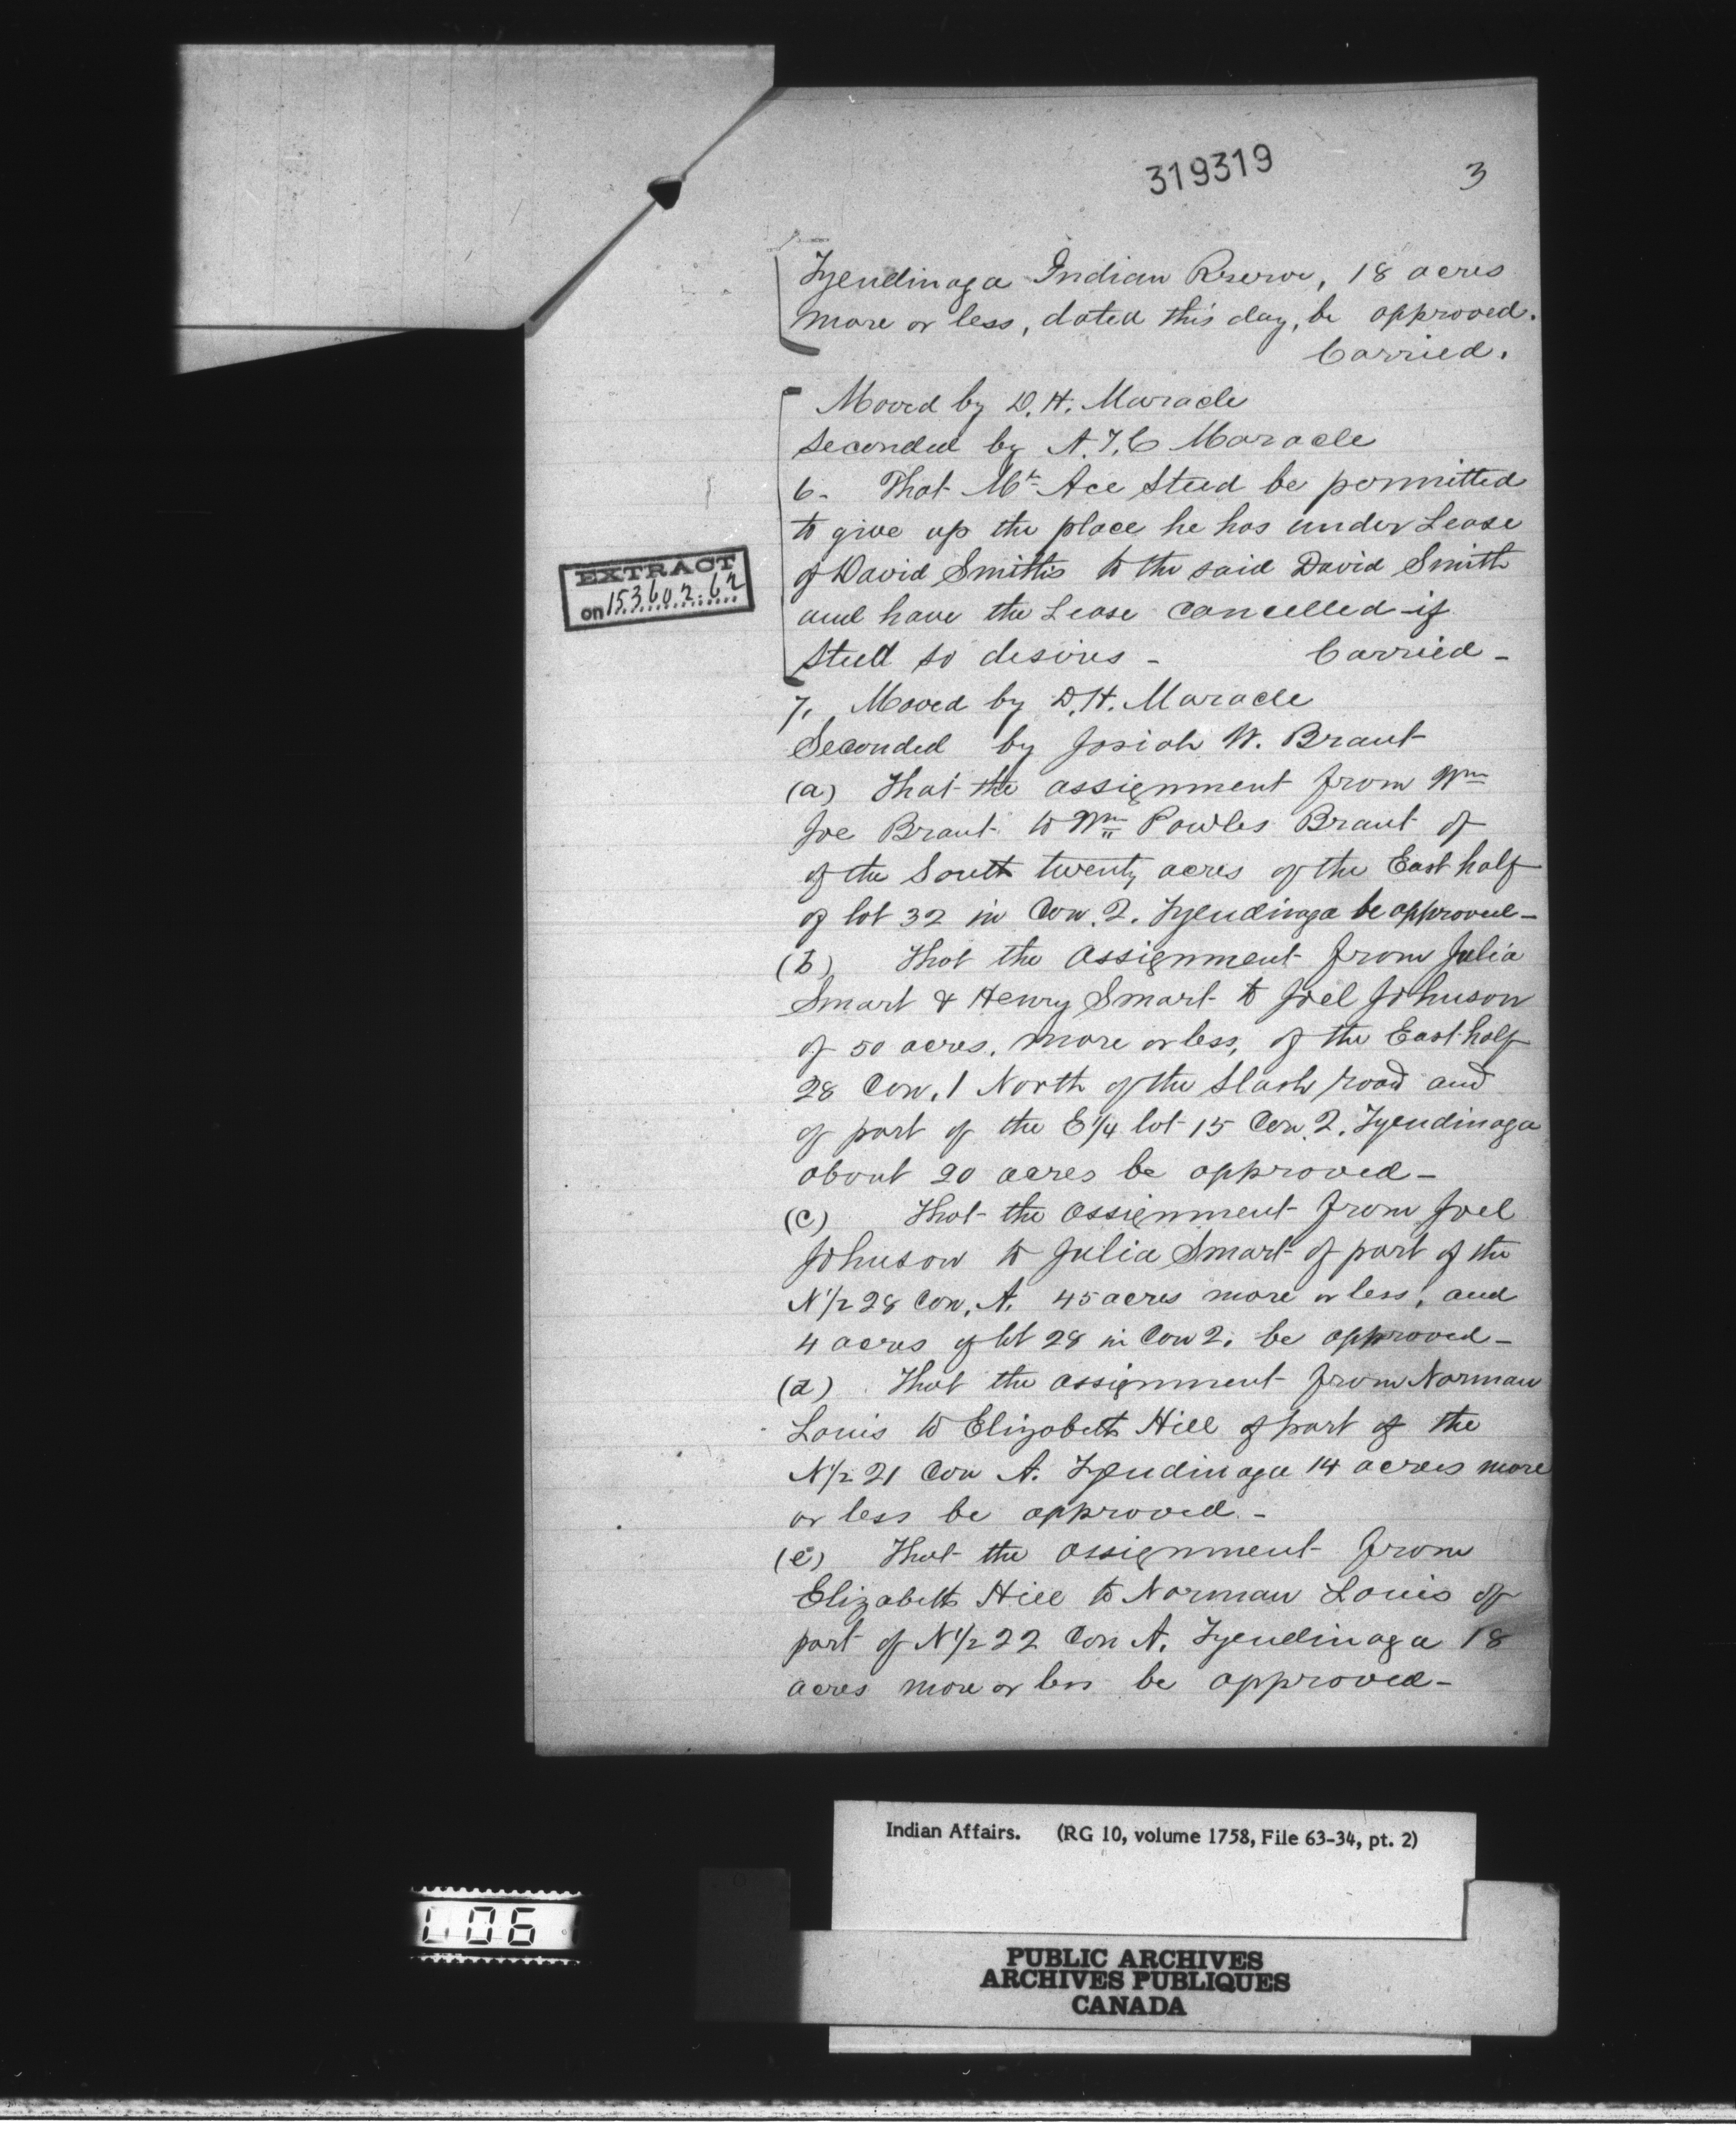 319319
3
Tyendinaga Indian Reserve, 18 acres
more or less, dated this day, be approved.
Carried.
Moved by D. H. Maracle
Seconded by A. T. C Maracle
6- That Mr Ace Steed be permitted
to give up the place he has under Lease
of David Smith's to the said David Smith
and have the Lease cancelled if
Steed so desires - Carried -
EXTRACT
on 153602.62
7. Moved by D. H. Maracle
Seconded by Josiah W. Brant
(a) That the assignment from Wm
Joe Brant to Wm Powles Brant of
of the South twenty acres of the East half
of lot 32 in Con. 2. Tyendinaga be approved -
(b) That the assignment from Julia
Smart & Henry Smart to Joel Johnson
of 50 acres, more or less, of the East half
28 Con. 1 North of the Slash road and
of part of the E 1/4 lot 15 Con. 2. Tyendinaga
about 20 acres be approved -
(c) That the assignment from Joel
Johnson to Julia Smart of part of the
N 1/2 28 Con. A. 45 acres more or less, and
4 acres of lot 28 in Con 2. be approved -
(d) That the assignment from Norman
Louis to Elizabeth Hill of part of the
N 1/2 21 Con A. Tyendinaga 14 acres more
or less be approved. -
(e) That the assignment from
Elizabeth Hill to Norman Louis of
part of N 1/2 22 Con A. Tyendinaga 18
acres more or less be approved -
Indian Affairs. (RG 10, volume 1758, File 63-34, pt. 2)
PUBLIC ARCHIVES
ARCHIVES PUBLIQUES
CANADA